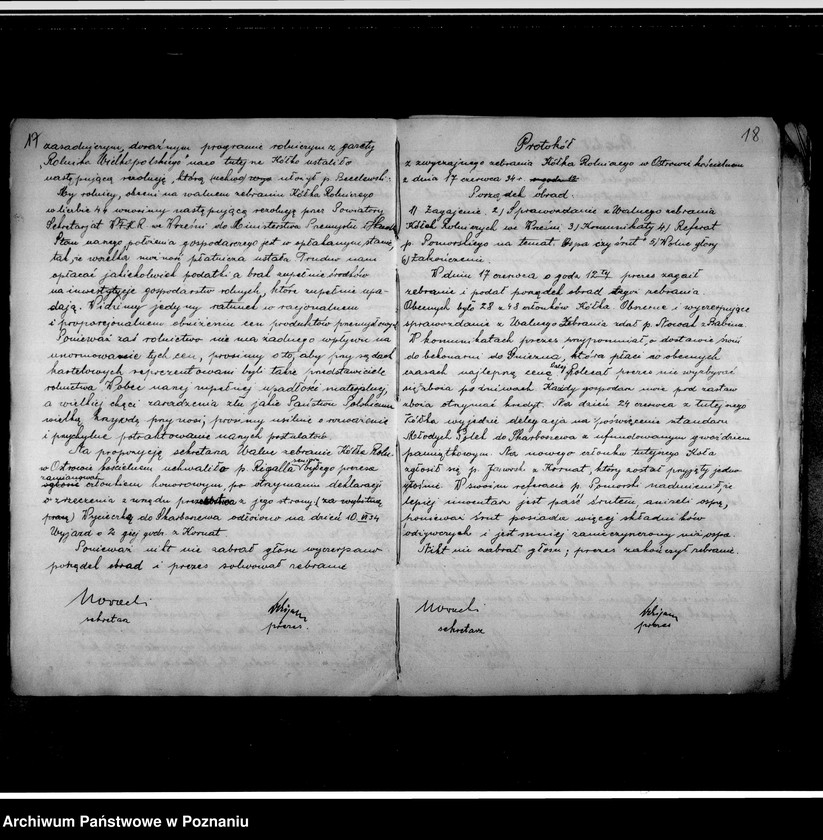 17
zasadniczym, doraźnym programie rolniczym z gazety
"Rolnika Wielkopolskiego" nasze tutejsze Kółko ustaliło
następującą rezolucję, którą ułożył p.
My rolnicy, obecni na walnem zebraniu Kółka Rolniczego
w liczbie 44 wnosimy następującą rezolucję przez Powiatowy
Sekretarjat W.T.K.R we Wrześni do Ministerstwa Przemysłu i
Stan naszego położenia gospodarczego jest w opłakanym stanie,
tak, że wszelka możność płatnicza ustała. Trudno nam
opłacać jakiekolwiek podatki a brak zupełnie środków
na inwestycje gospodarstw rolnych, które zupełnie upa-
dają. Widzimy jedyny ratunek w racjonalnem
i proporcjonalnem obniżeniu cen produktów przemysłowych
Ponieważ zaś rolnictwo nie ma żadnego wpływu na
unormowanie tych cen, prosimy o to, aby przy sądach
kartelowych reprezentowani byli także przedstawiciele
rolnictwa. Wobec naszej zupełnej upadłości materjalnej,
a wielkiej chęci zaradzenia złu jakie Państwu Polskiemu
wielką krzywdę przynosi, prosimy usilnie o uwzględnienie
i przychylne potraktowanie naszych postulatów.
Na propozycję sekretarza Walne zebranie Kółka Roln.
w Ostrowie kościelnem uchwaliło p. Regulla seniora byłego prezesa
zamianować członkiem honorowym, po otrzymaniu deklaracji
o zrzeczeniu z urzędu prezesostwa z jego strony (za wybitną
pracę) Wycieczkę do Skarboszewa odłożono na dzień 10.VI 34
Wyjazd o 2 giej godz. z Kornat
Ponieważ nikt nie zabrał głosu wyczerpano
porządek obrad i prezes solwował zebranie
Nowacki
sekretarz
prezes.
18
Protokół
z zwyczajnego zebrania Kółka Rolniczego w Ostrowie kościelnem
z dnia 17 czerwca 34 r.
Porządek obrad
1) Zagajenie. 2) Sprawozdanie z Walnego zebrania
Kółek Rolniczych we Wrześni 3) Komunikaty 4) Referat
p. Pomorskiego na temat Ospa czy śrut 5) Wolne głosy
6) Zakończenie.
W dniu 17 czerwca o godz 12 tej prezes zagaił
zebranie i podał porządek obrad zebrania.
Obecnych było 28 z 43 członków Kółka. Obszerne i wyczerpujące
sprawozdanie z Walnego Zebrania zdał p. z Babina.
W komunikatach prezes przypomniał, o dostawie świń
do bekoniarni do Gniezna, która płaci w obecnych
czasach najlepszą cenę. Polecał prezes nie wyzbywać
się zboża po żniwach. Każdy gospodarz może pod zastaw
zboża otrzymać kredyt. Na dzień 24 czerwca z tutejszego
Kółka wyjedzie delegacja na poświęcenie sztandaru
Młodych Polek do Skarboszewa z ufundowanym gwoździem
pamiątkowym. Na nowego członka tutejszego Koła
zgłosił się p. Jaworski z Kornat, który został przyjęty jedno-
głośnie. W swoim referacie p. Pomorski nadmienił, że
lepiej inwentarz jest paść śrutem, aniżeli ospą,
ponieważ śrut posiada więcej składników
odżywczych i jest mniej zanieczyszczony niż ospa.
Nikt nie zabrał głosu; prezes zakończył zebranie.
Nowacki
sekretarz
prezes
Archiwum Państwowe w Poznaniu